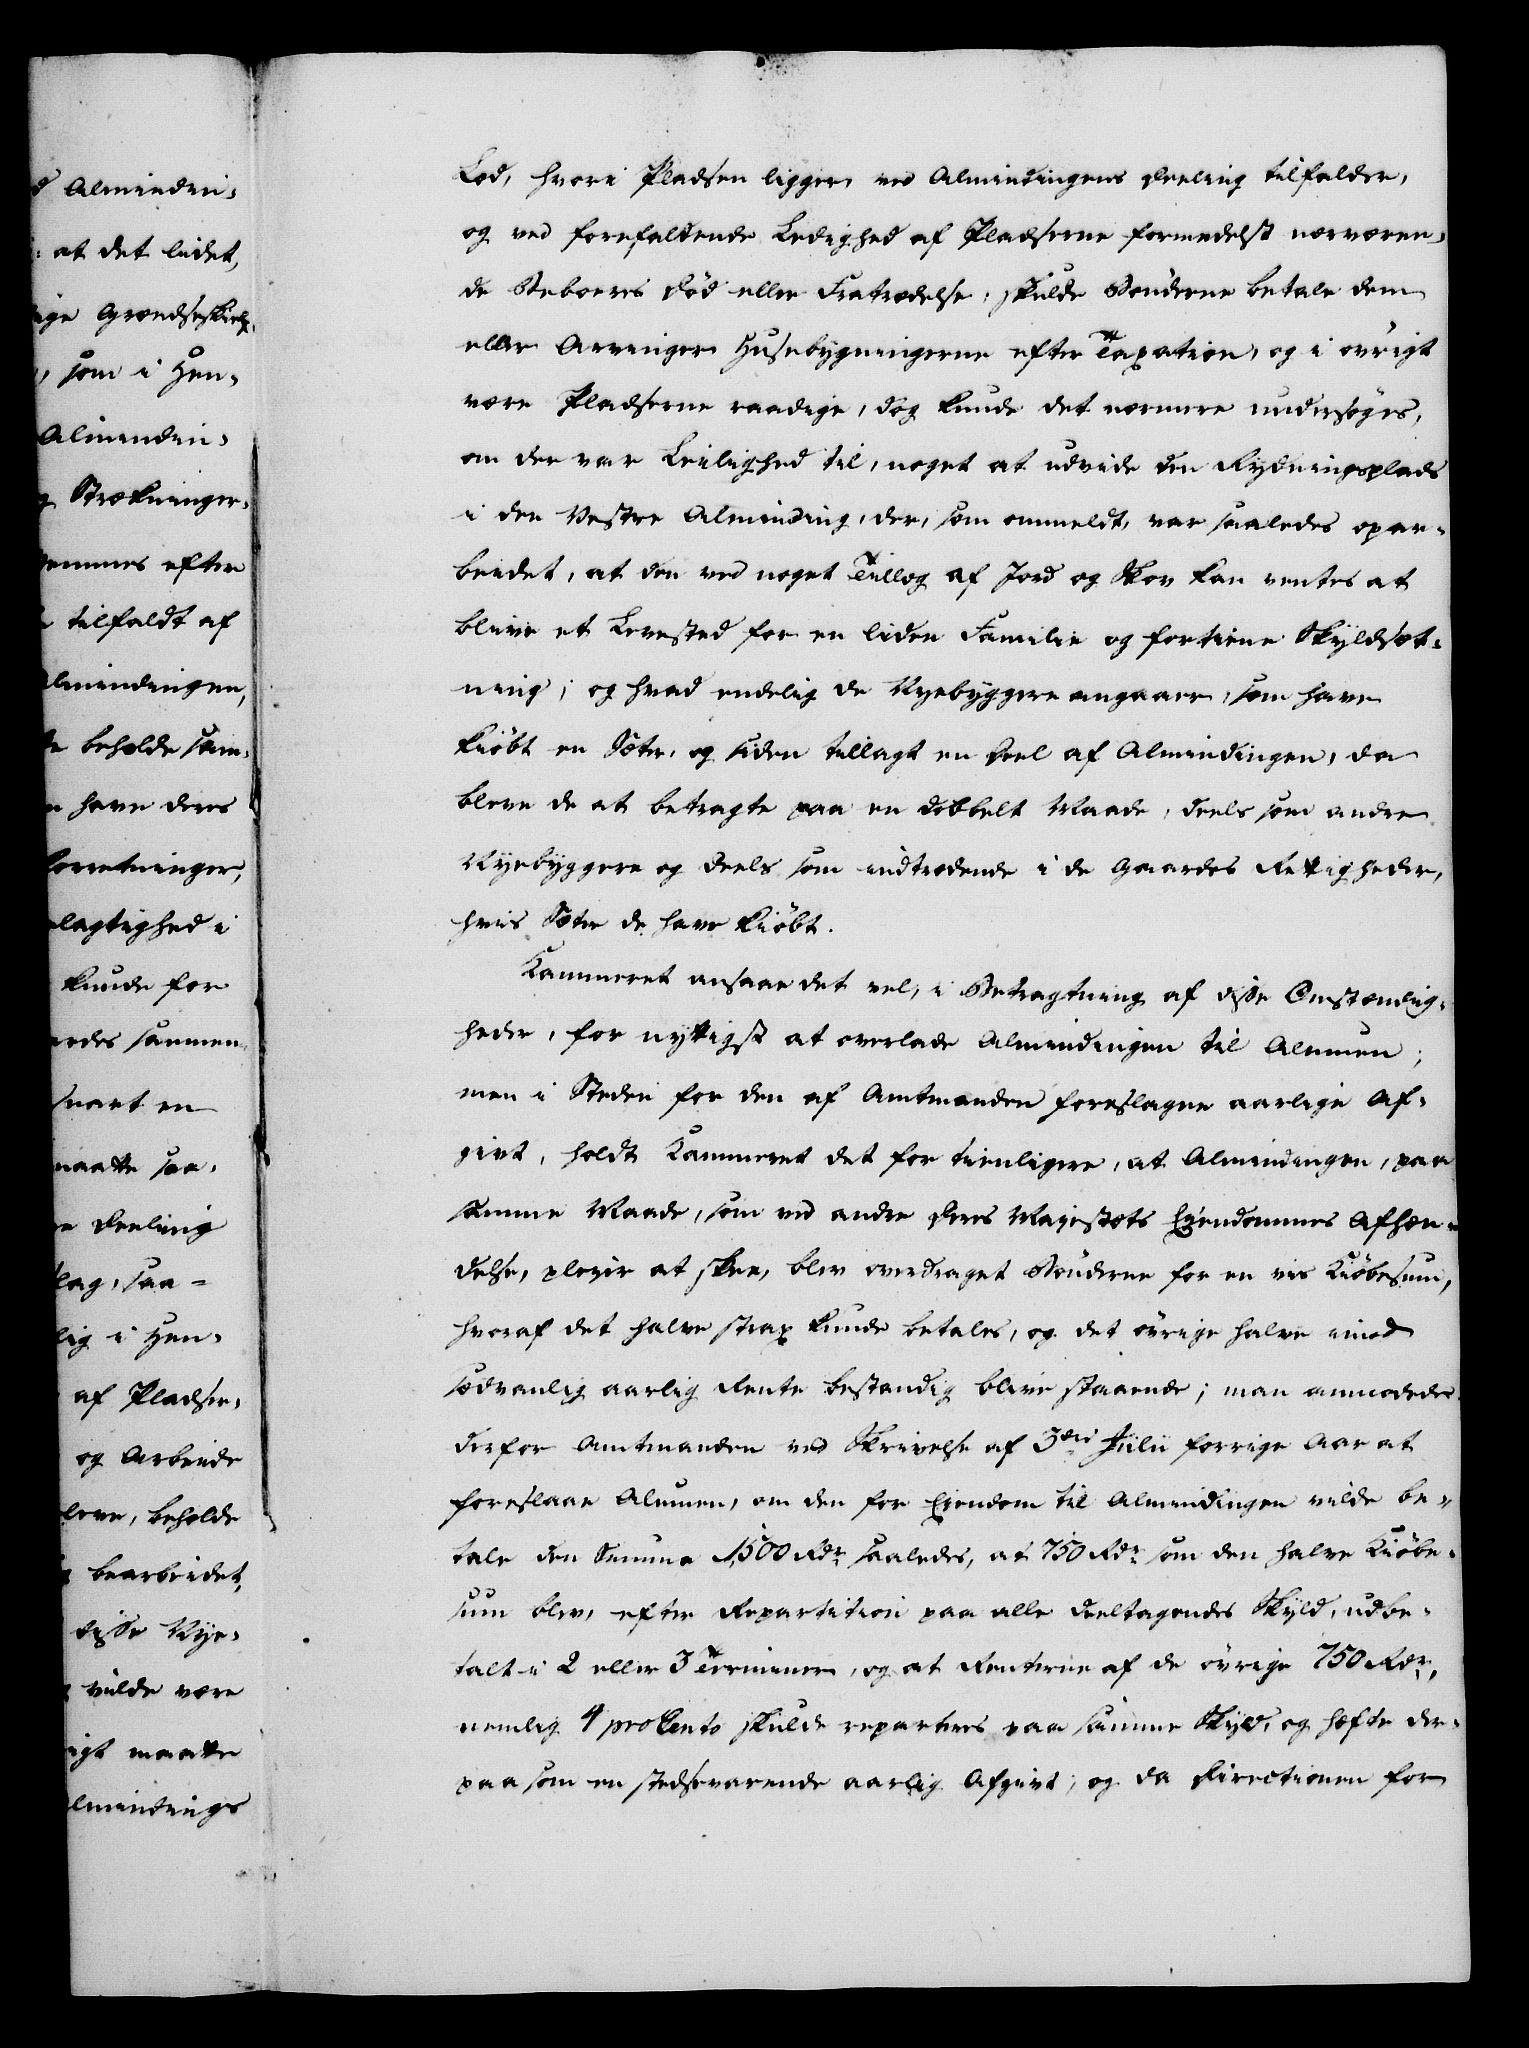 d Almindin-
: at det lidet,
ige Grændseskiels,
, som i Hen-
Almindin-
g Strækninger,
temmes efter
tilfaldt af
lmindingen,
te beholde sam-
n have deres
forretninger,
elagtighed i
kunde for
ardes sammen
snart en
maatte saa-
re Deeling
slag, saa-
lig i Hen-
af Pladser,
og Arbeide
leve, beholde
g bearbeidet,
disse Nye-
vilde være
rigt maatte
lmindings
Lod, hvori Pladsen ligger, ved Almindingens Deeling tilfalder,
og ved forefaldende Ledighed af Pladserne formedelst nærværen-
de Beboeres Död eller Fratrædelse, skulde Bönderne betale dem
eller Arvinger Husebygningerne efter Taxation, og i övrigt
være Pladserne raadige, dog kunde det nærmere undersöges,
om der var Leilighed til, noget at udvide den Rydningsplads
i den Vestre Alminding, der, som anmeldt, var saaledes opar-
beidet, at den ved noget Tillæg af Jord og Skov kan ventes at
blive et Levested for en liden Familie og fortiene Skyldsæt-
ning; og hvad endelig de Nyebyggere angaaer, som have
kiöbt en Sæter, og siden tillagt en Deel af Almindingen, da
bleve de at betragte paa en dobbelt Maade, deels som andre
Nyebyggere og deels som indtrædende i de Gaardes Rettigheder,
hvis Sæter de have kiöbt.
Kammeret ansaae det vel, i Betragtning af disse Omstændig-
heder, for nyttigst at overlade Almindingen til Almuen;
men i Steden for den af Amtmanden foreslagne aarlige Af-
givt, holdt Kammeret det for tienligere, at Almindingen, paa
samme Maade, som ved andre Deres Majestæts Eiendommes Afhæn-
delse, pleier at skee, blev overdraget Bönderne for en vis Kiöbesum,
hvoraf det halve strax kunde betales, og det övrige halve imod
sædvanlig aarlig Rente bestandig blive staaende; man anmodede
derfor Amtmanden ved Skrivelse af 3die Julii forrige Aar at
foreslaae Almuen, om den for Eiendom til Almindingen vilde be-
tale den Summa 1500 Rdr saaledes, at 750 Rdr som den halve Kiöbe-
sum blev, efter Repartition paa alle deeltagendes Skyld, udbe-
talt i 2 eller 3 Terminer, og at Renterne af de övrige 750 Rdr,
nemlig 4 pro Cento skulde reparteres paa samme Skyld, og hefte der-
paa som en stedsevarende aarlig Afgivt; og da Directionen for